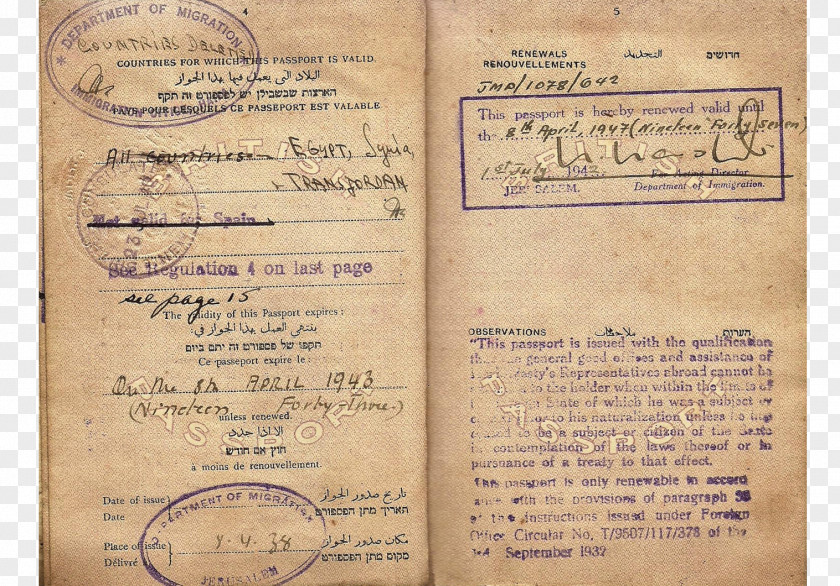 4
DEPARTMENT OF MIGRATION
COUNTRIES DELETED
COUNTRIES FOR WHICH THIS PASSPORT IS VALID.
البلاد التي يعمل فيها بهذا الجواز
הארצות שבשבילן יש לפספורט זה תקף
PAYS POUR LESQUELS CE PASSEPORT EST VALABLE
IMMIGRATION
All countries Egypt, Syria,
TRANSJORDAN
Not valid for Spain
See Regulation 4 on last page
see page 15
The validity of this Passport expires:
ينتهي العمل بهذا الجواز في:
תקפו של פספורט זה יתם ביום
Ce passeport expire le:
On the 8th APRIL 1943
(Nineteen Forty Three.)
unless renewed.
الا اذا جدد
חוץ אם חודש
à moins de renouvellement.
Date of issue تاريخ صدور الجواز
Date תאריך מתן הפספורט
DEPARTMENT OF MIGRATION
Place of issue 8.4.38 مكان صدور الجواز
Délivré מקום מתן הפספורט
JERUSALEM
5
RENEWALS التجديد חדושים
RENOUVELLEMENTS
JMA/1078/642
This passport is hereby renewed valid until
the 8th April, 1947 (Nineteen Forty Seven)
1st July, 1942 For Acting Director
JERUSALEM. Department of Immigration.
OBSERVATIONS ملاحظات הערות
"This passport is issued with the qualification
general good offices and assistance of
Majesty's Representatives abroad cannot be
to the holder when within the limits of
State of which he was a subject or
to his naturalization unless he has
ceased to be a subject or citizen of the State
in contemplation of the laws thereof or in
pursuance of a treaty to that effect.
This passport is only renewable in accord
ance with the provisions of paragraph
of the instructions issued under Foreign
Office Circular No, T/9507/117/378 of the
September 1932
BRITISH
PASSPORT
BRITISH
PASSPORT